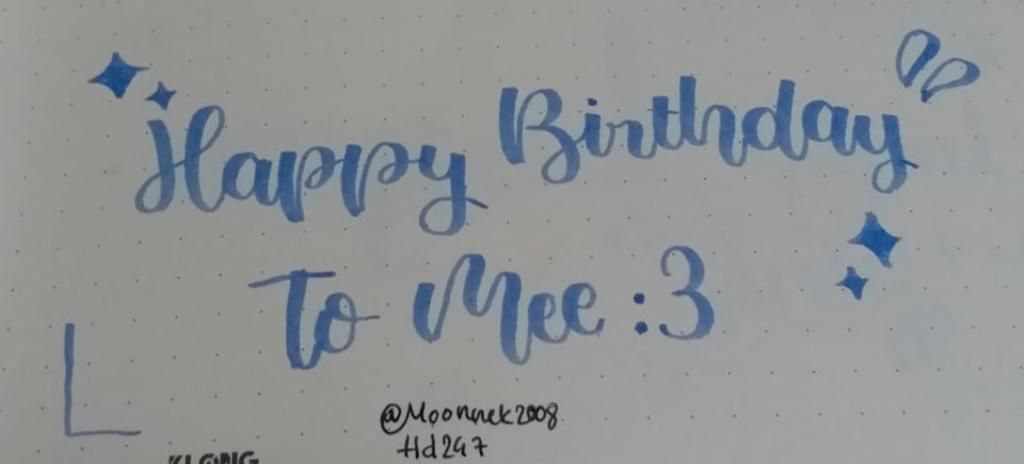 Happy Birthday
To Mee :3
@Moonnek2008
Hd247
KLONG